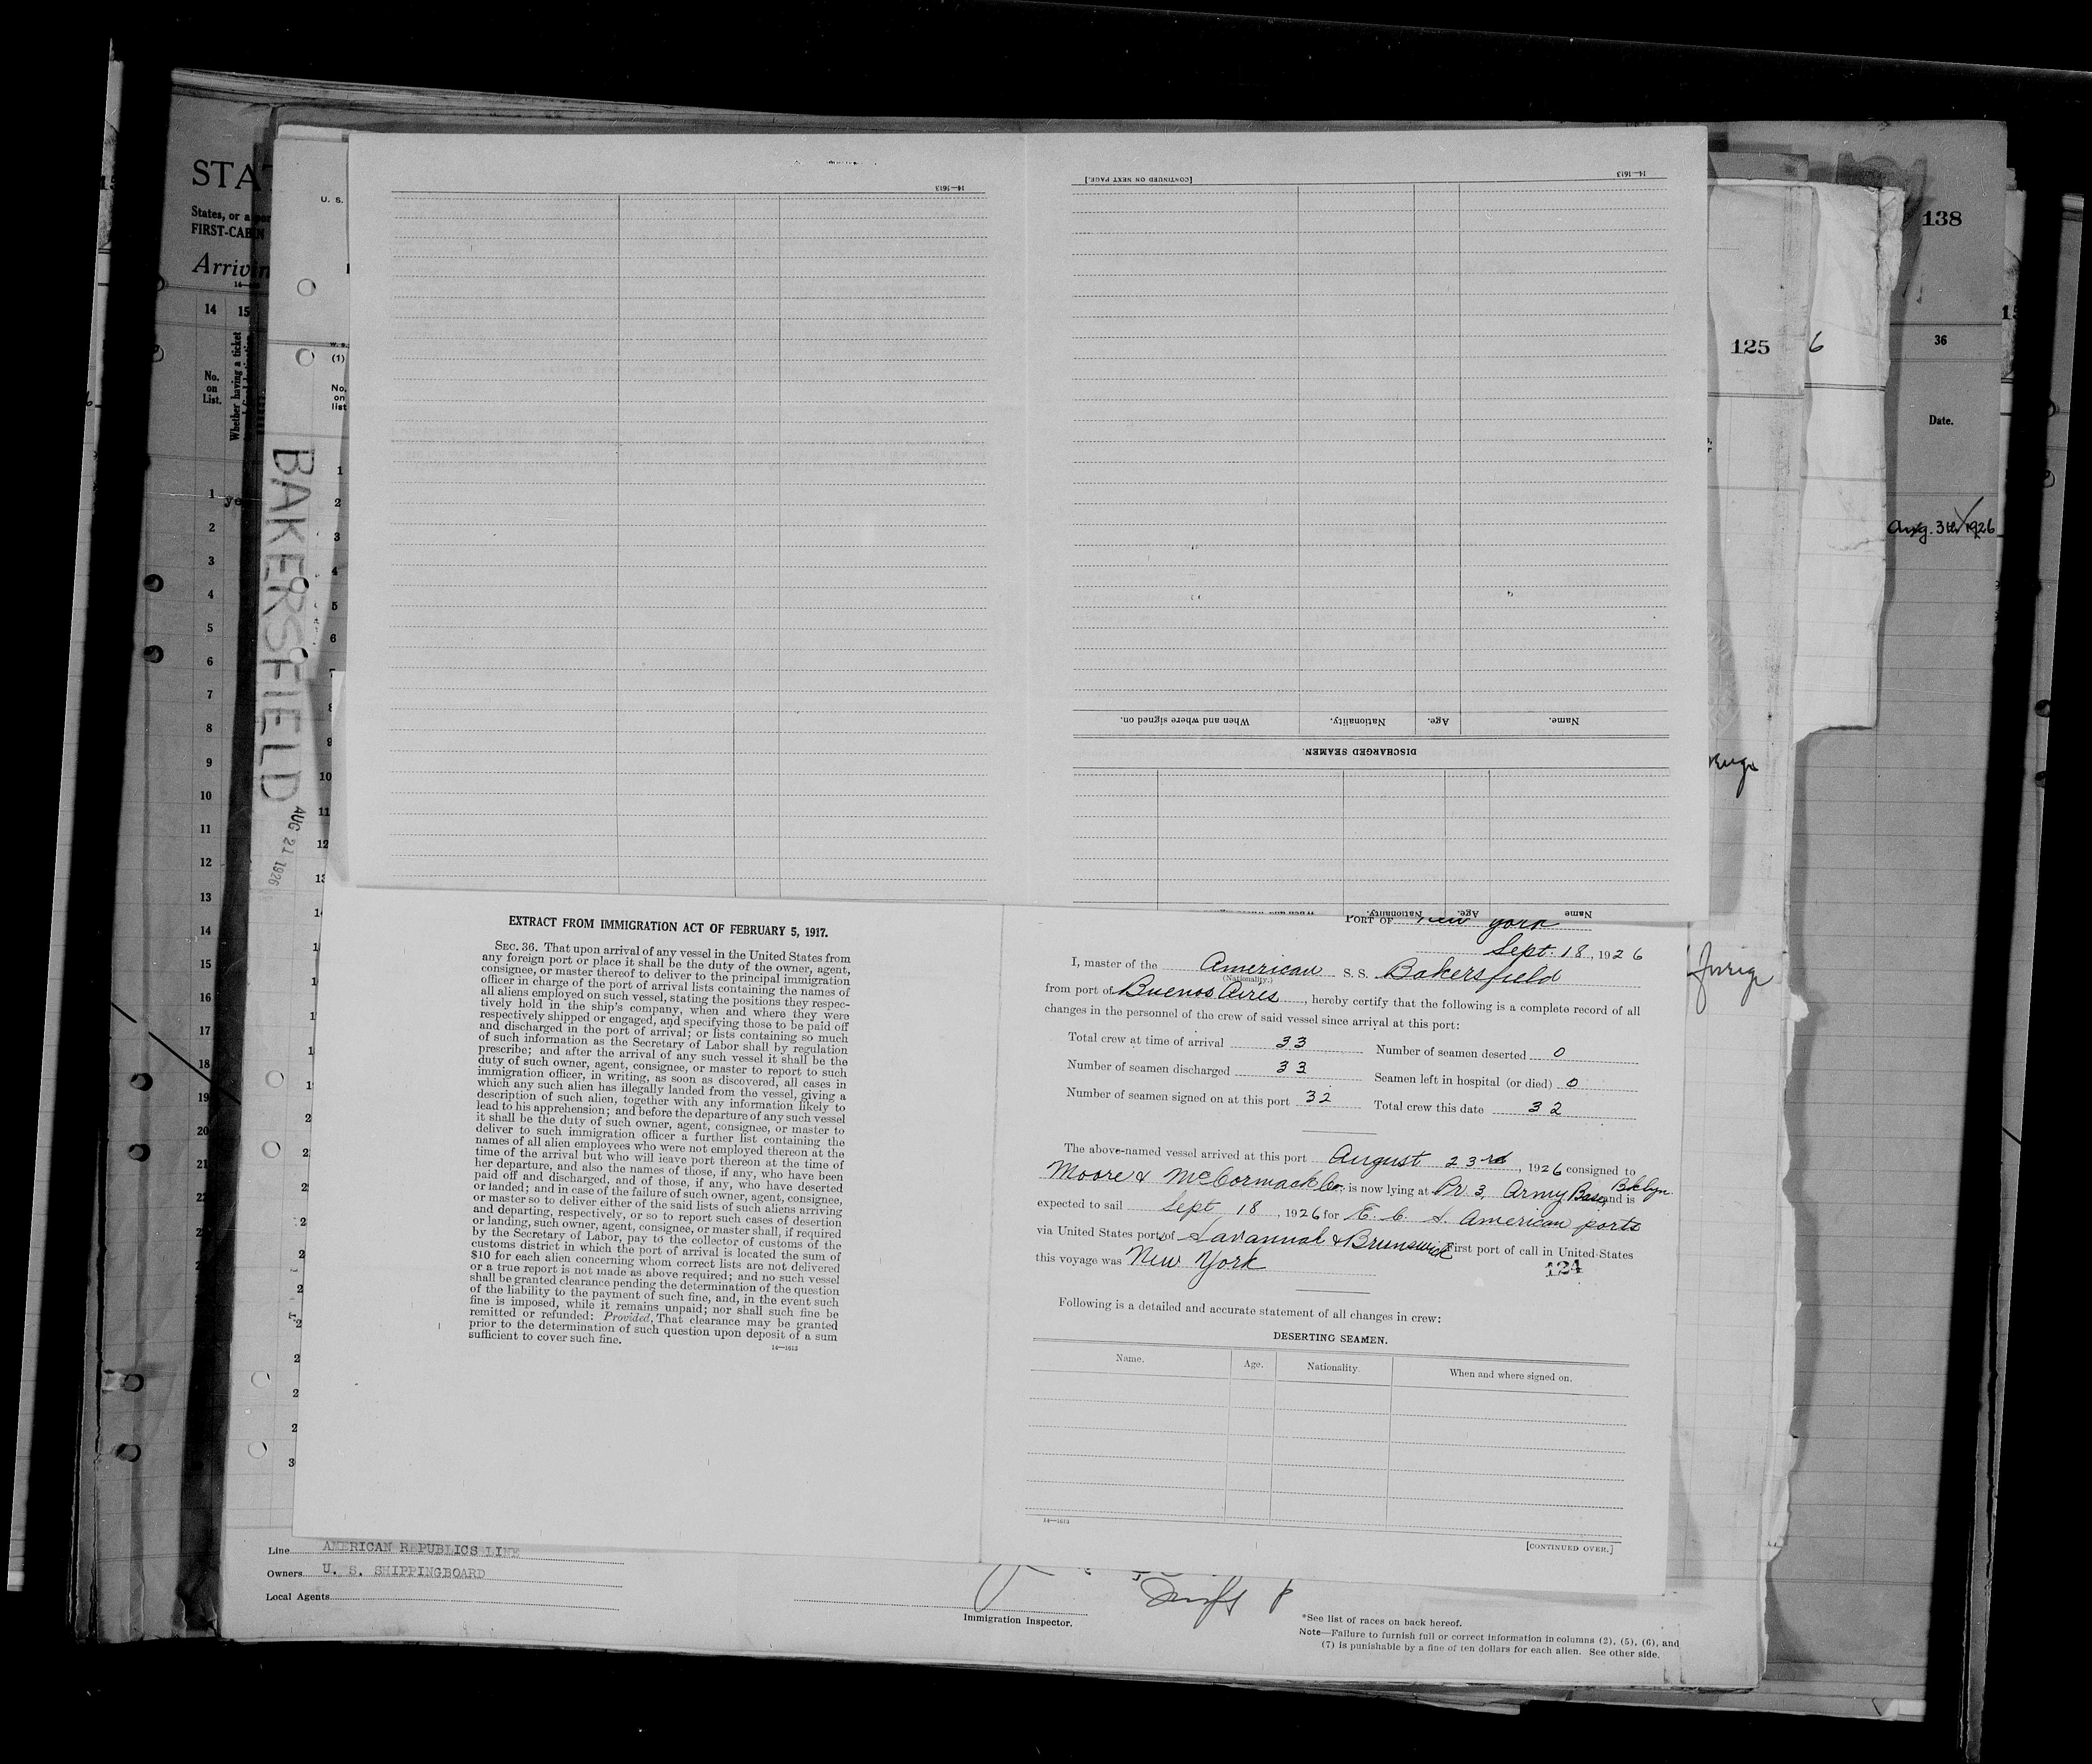 STA
States, or a
FIRST-CABIN
Arrivin
14 15
No.
on
List.
Whether having a ticket
U. S.
(1)
No.
on
list
BAKERSFIELD
AUG 21 1926
138
36
Date.
Aug. 3th 1926
125
6
14—1613
[CONTINUED ON NEXT PAGE.]
14—1613
When and where signed on.
Nationality.
Age.
Name.
DISCHARGED SEAMEN.
Nationality.
Age.
Name
EXTRACT FROM IMMIGRATION ACT OF FEBRUARY 5, 1917.
SEC. 36. That upon arrival of any vessel in the United States from
any foreign port or place it shall be the duty of the owner, agent,
consignee, or master thereof to deliver to the principal immigration
officer in charge of the port of arrival lists containing the names of
all aliens employed on such vessel, stating the positions they respec-
tively hold in the ship's company, when and where they were
respectively shipped or engaged, and specifying those to be paid off
and discharged in the port of arrival; or lists containing so much
of such information as the Secretary of Labor shall by regulation
prescribe; and after the arrival of any such vessel it shall be the
duty of such owner, agent, consignee, or master to report to such
immigration officer, in writing, as soon as discovered, all cases in
which any such alien has illegally landed from the vessel, giving a
description of such alien, together with any information likely to
lead to his apprehension; and before the departure of any such vessel
it shall be the duty of such owner, agent, consignee, or master to
deliver to such immigration officer a further list containing the
names of all alien employees who were not employed thereon at the
time of the arrival but who will leave port thereon at the time of
her departure, and also the names of those, if any, who have been
paid off and discharged, and of those, if any, who have deserted
or landed; and in case of the failure of such owner, agent, consignee,
or master so to deliver either of the said lists of such aliens arriving
and departing, respectively, or so to report such cases of desertion
or landing, such owner, agent, consignee, or master shall, if required
by the Secretary of Labor, pay to the collector of customs of the
customs district in which the port of arrival is located the sum of
$10 for each alien concerning whom correct lists are not delivered
or a true report is not made as above required; and no such vessel
shall be granted clearance pending the determination of the question
of the liability to the payment of such fine, and, in the event such
fine is imposed, while it remains unpaid; nor shall such fine be
remitted or refunded: Provided, That clearance may be granted
prior to the determination of such question upon deposit of a sum
sufficient to cover such fine.
14—1613
PORT OF New York
Sept. 18, 1926
I, master of the American S. S. Bakersfield
(Nationality.)
from port of Buenos Aires, hereby certify that the following is a complete record of all
changes in the personnel of the crew of said vessel since arrival at this port:
Total crew at time of arrival 33 Number of seamen deserted 0
Number of seamen discharged 33 Seamen left in hospital (or died) 0
Number of seamen signed on at this port 32 Total crew this date 32
The above-named vessel arrived at this port August 23rd, 1926 consigned to
Moore & McCormack Co. is now lying at Pr. 3, Army Base, Bklyn. and is
expected to sail Sept 18, 1926 for E. C. S. American ports
via United States ports of Savannah & Brunswick First port of call in United States
this voyage was New York
124
Following is a detailed and accurate statement of all changes in crew:
DESERTING SEAMEN.
Name. Age. Nationality. When and where signed on.
14—1613
[CONTINUED OVER.]
Line AMERICAN REPUBLICS LINE
Owners U. S. SHIPPINGBOARD
Local Agents
Immigration Inspector.
*See list of races on back hereof.
Note—Failure to furnish full or correct information in columns (2), (5), (6), and
(7) is punishable by a fine of ten dollars for each alien. See other side.